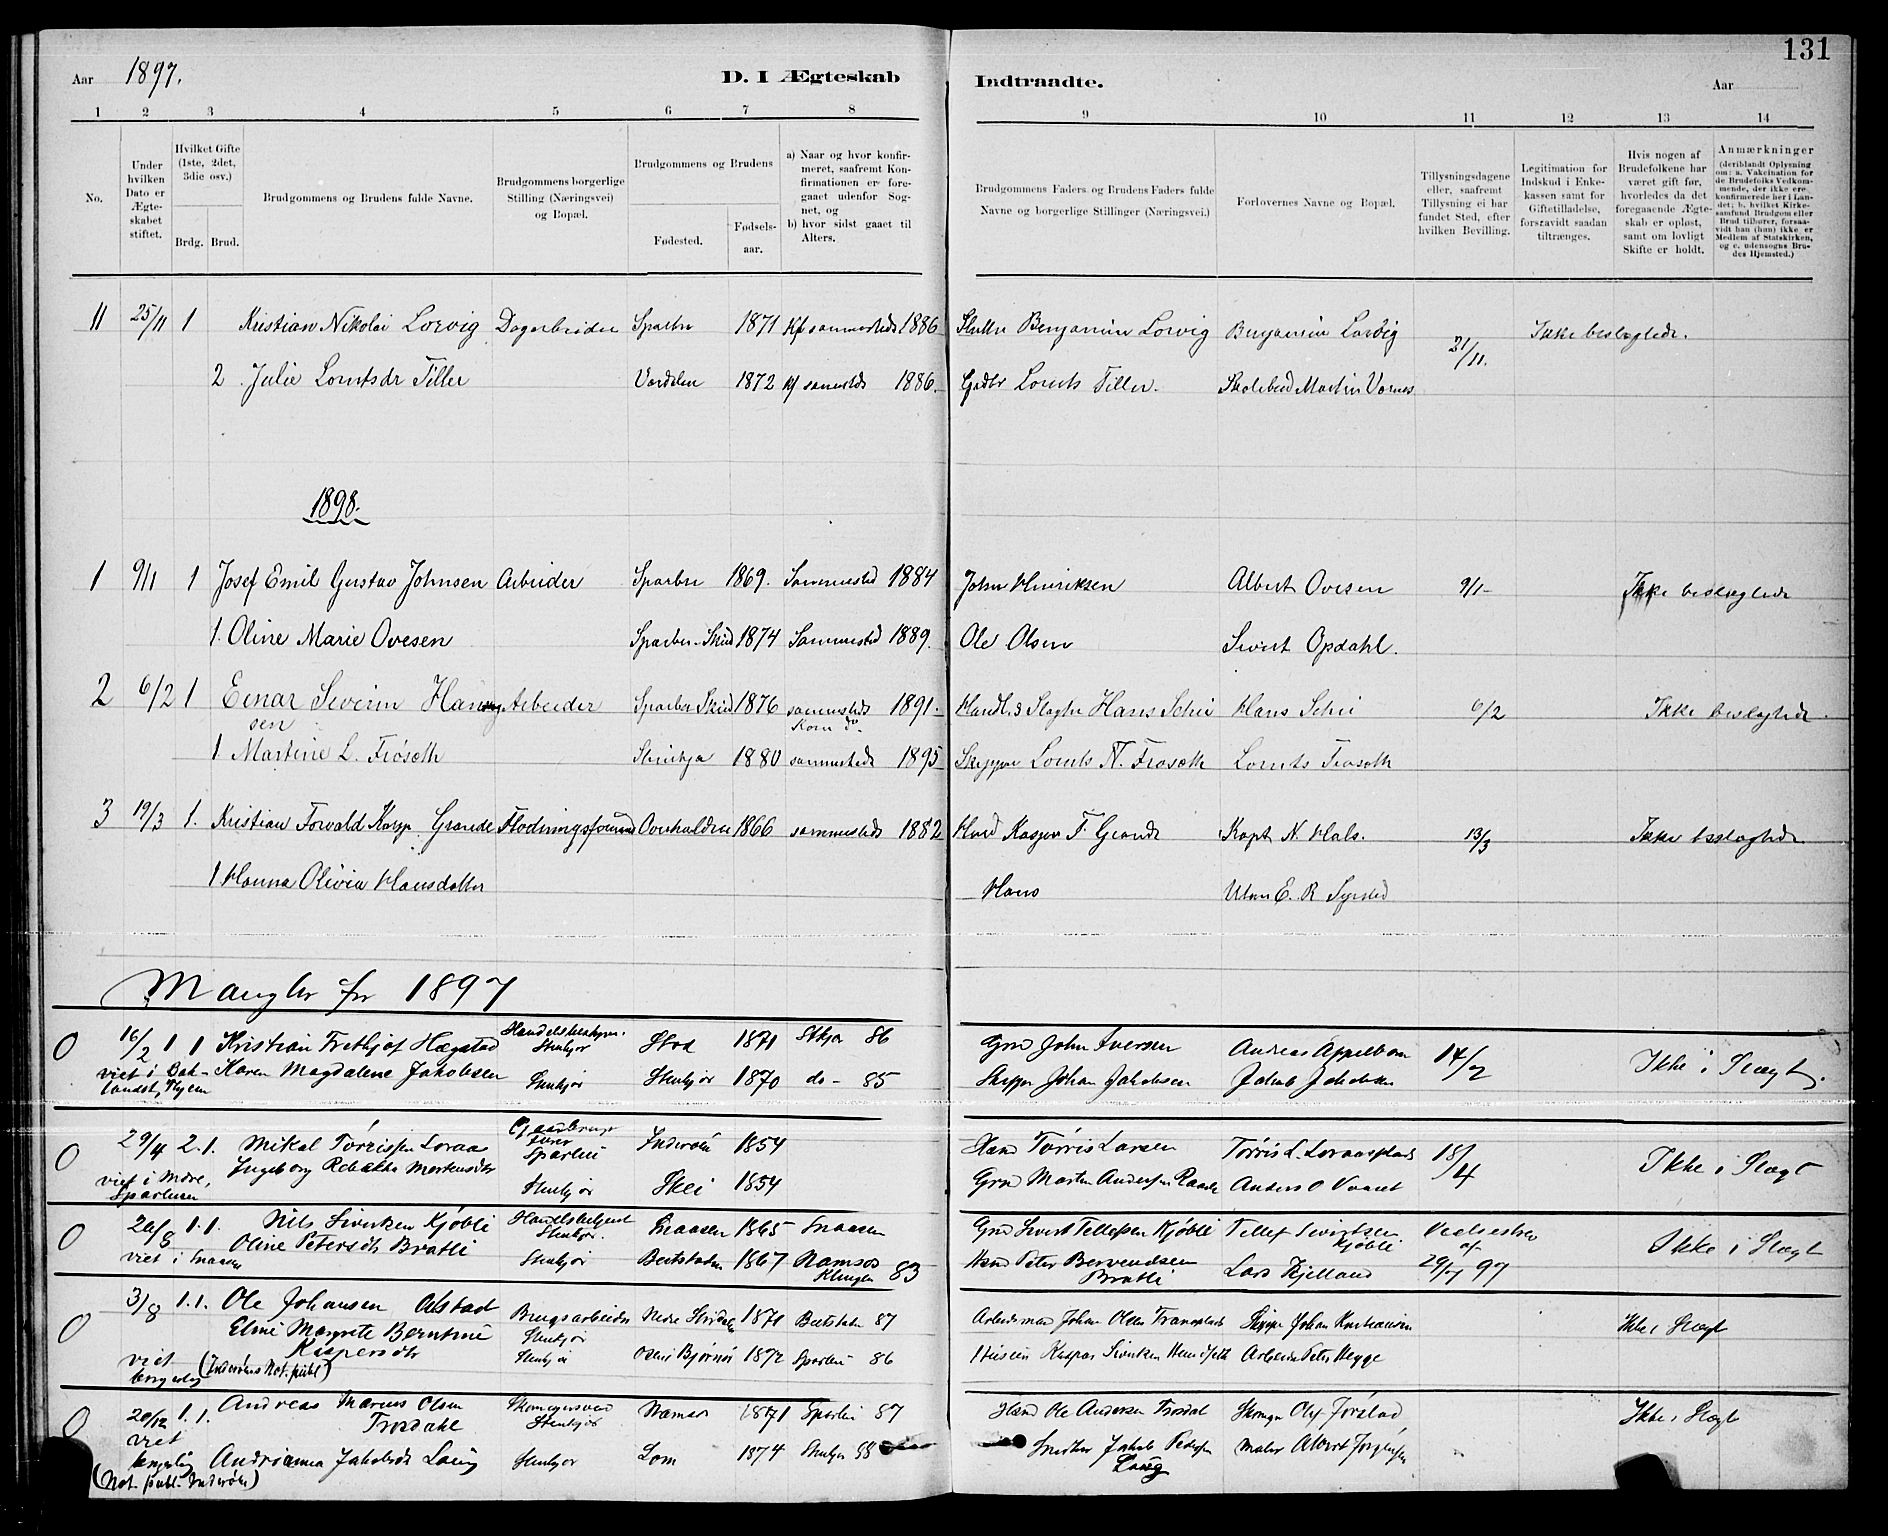 131
Aar 1897. D. I Ægteskab Indtraadte. Aar
1 2 3 4 5 6 7 8 9 10 11 12 13 14
No.
Under hvilken Dato er Ægteskabet stiftet.
Hvilket Gifte (1ste, 2det, 3die osv.)
Brdg. Brud.
Brudgommens og Brudens fulde Navne.
Brudgommens borgerlige Stilling (Næringsvei) og Bopæl.
Brudgommens og Brudens
Fødested. Fødselsaar.
a) Naar og hvor konfirmeret, saafremt Konfirmationen er foregaaet udenfor Sognet, og
b) hvor sidst gaaet til Alters.
Brudgommens Faders og Brudens Faders fulde Navne og borgerlige Stillinger (Næringsvei.)
Forlovernes Navne og Bopæl.
Tillysningsdagene eller, saafremt Tillysning ei har fundet Sted, efter hvilken Bevilling.
Legitimation for Indskud i Enkekassen samt for Giftetilladelse, forsaavidt saadan tiltrænges.
Hvis nogen af Brudefolkene har været gift før, hvorledes da det foregaaende Ægteskab er opløst, samt om lovligt Skifte er holdt.
Anmærkninger (deriblandt Oplysning om: a. Vakcination for de Brudefolks Vedkommende, der ikke ere konfirmerede her i Landet; b. hvilket Kirkesamfund Brudgom eller Brud tilhører, forsaavidt han (hun) ikke er Medlem af Statskirken, og c. udensogns Brudes Hjemsted.)
11 25/11 1 Kristian Nikolai Lorvig Dagarbeider Sparbu 1871 Kf sammesteds 1886 Benjamin Lorvig Benjamin Lorvig 21/11. Ikke beslægtede.
2 Julie Lorntsdr Tiller Værdalen 1872 Kf sammesteds 1886. Gadbr Lornts Tiller. Martin Vornes
1898.
1 9/1 1 Josef Emil Gustav Johnsen Arbeider Sparbu 1869. Sammested 1884 John Henriksen Albert Ovesen 9/1 Ikke beslægtede
1. Oline Marie Ovesen Sparbu 1874 Sammested 1889. Ole Olsen Sivert Opdahl.
2 6/2 1 Einar Severin Hansen Arbeider Sparbu 1876 sammesteds 1891. Hans Schei Hans Schei 6/2 Ikke beslægtede.
1 Martine L. Frøseth Stenkjær 1880 sammesteds 1895 Skipper Lornts N. Frøseth Lornts Frøseth
3 19/3 1. Kristian Torvald Kasp. Grande Overhalden 1866 sammesteds 1882 Kasper F. Grande Kapt N. Hals. 13/3 Ikke beslægtede.
1 Hanna Olivia Hansdatter Hans E. R
Mangler for 1897
0 16/2 1 1 Kristian Frethjof Hægstad Stenkjær Stod 1871 Stkjær 86 Grd John Iversen Andreas Appelbom 14/2 Ikke i Slægt.
viet i Baklandet, Thjem Karen Magdalene Jakobsen Stenkjær Stenkjær 1870 do 85 Skipper Johan Jakobsen Jakob Jakobsen
0 29/4 2. 1. Mikal Tørrissen Loraas Gaardbruger Sparbu Inderøen 1854 Tørris Larsen Tørris L. Loraas 18/4 Ikke i Slægt
viet i Mære, Sparbuen Ingeborg Rebekka Mortensdtr Stenkjær Skei 1854 Grd Morten Andersen Anders O
0 20/8 1. 1. Nils Sivertsen Kjøbli Handelsbetjent Stenkjær. Snaasen 1865 Snaasen Grd Sivert Tellefsen Kjøbli Tellef Sivertsen Kjøbli af Ikke i Slægt
viet i Snaasen Oline Petersdtr Bratli Stenkjær Beitstaden 1867 Namsos Klingen 83 Peter Berendsen Bratli Lars Kjelland 29/7 97
0 3/8 1. 1. Ole Johansen Alstad Brugsarbeider Stenkjær Nedre Stjørdalen 1871 Beitstaden 87 Arbeidsmand Johan Olsen Skipper Johan Kristiansen Ikke i Slægt
viet borgerlig (Inderøens Not. publ) Eline Margrete Berntine Kaspersdtr Stenkjær Bjørnør 1872 Sparbu 86 Kaspar Sivertsen Arbeider Peter Hegge
0 20/12 1. 1. Andreas Marius Olsen Trøsdahl Skomagersvend Stenkjær Namsos 1871 Sparbu 87 Ole Andersen Trøsdal Skomgr Olaf Førstad Ikke i Slægt
viet borgerlig (Not. publ. Inderøen) Andrianna Jakobsdtr Lorvig Stenkjær Lom 1874 Stenkjær 88 Snedker Jakob Pedersen Lorvig Maler Albert Jørgensen